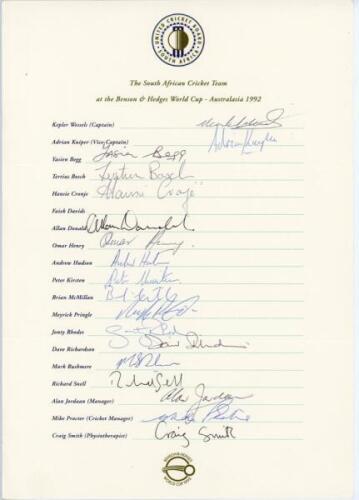 UNITED CRICKET BOARD
SOUTH AFRICA
The South African Cricket Team
at the Benson & Hedges World Cup - Australasia 1992
Kepler Wessels (Captain)
Adrian Kuiper (Vice Captain) Adrian Kuiper
Yasien Begg Yasien Begg
Tertius Bosch Tertius Bosch
Hansie Cronje Hansie Cronje
Faiek Davids
Allan Donald Allan Donald
Omar Henry Omar Henry
Andrew Hudson
Peter Kirsten Peter Kirsten
Brian McMillan
Meyrick Pringle
Jonty Rhodes
Dave Richardson Dave Richardson
Mark Rushmere
Richard Snell
Alan Jordaan (Manager) Alan Jordaan
Mike Procter (Cricket Manager) Mike Procter
Craig Smith (Physiotherapist) Craig Smith
BENSON & HEDGES
WORLD CUP 1992